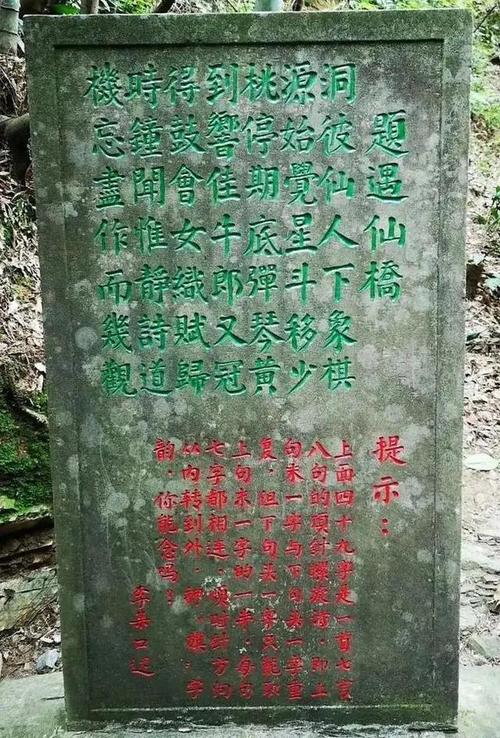 題遇仙橋
洞彼仙人下象棋
源始覺星斗移少
桃停期底彈琴黃
到響佳牛郎又冠
得鼓會女織賦歸
時鐘聞惟靜詩道
機忘盡作而幾觀
提示：
上面四十九字是一首七言
八句的頂針續麻詩，即上
句末一字与下句末一字重
复，但下句头一字只能取
上句末一字的一半，每句
七字都相连，顺时针方向
以内转到外，字
韵，你能念吗？
李口述